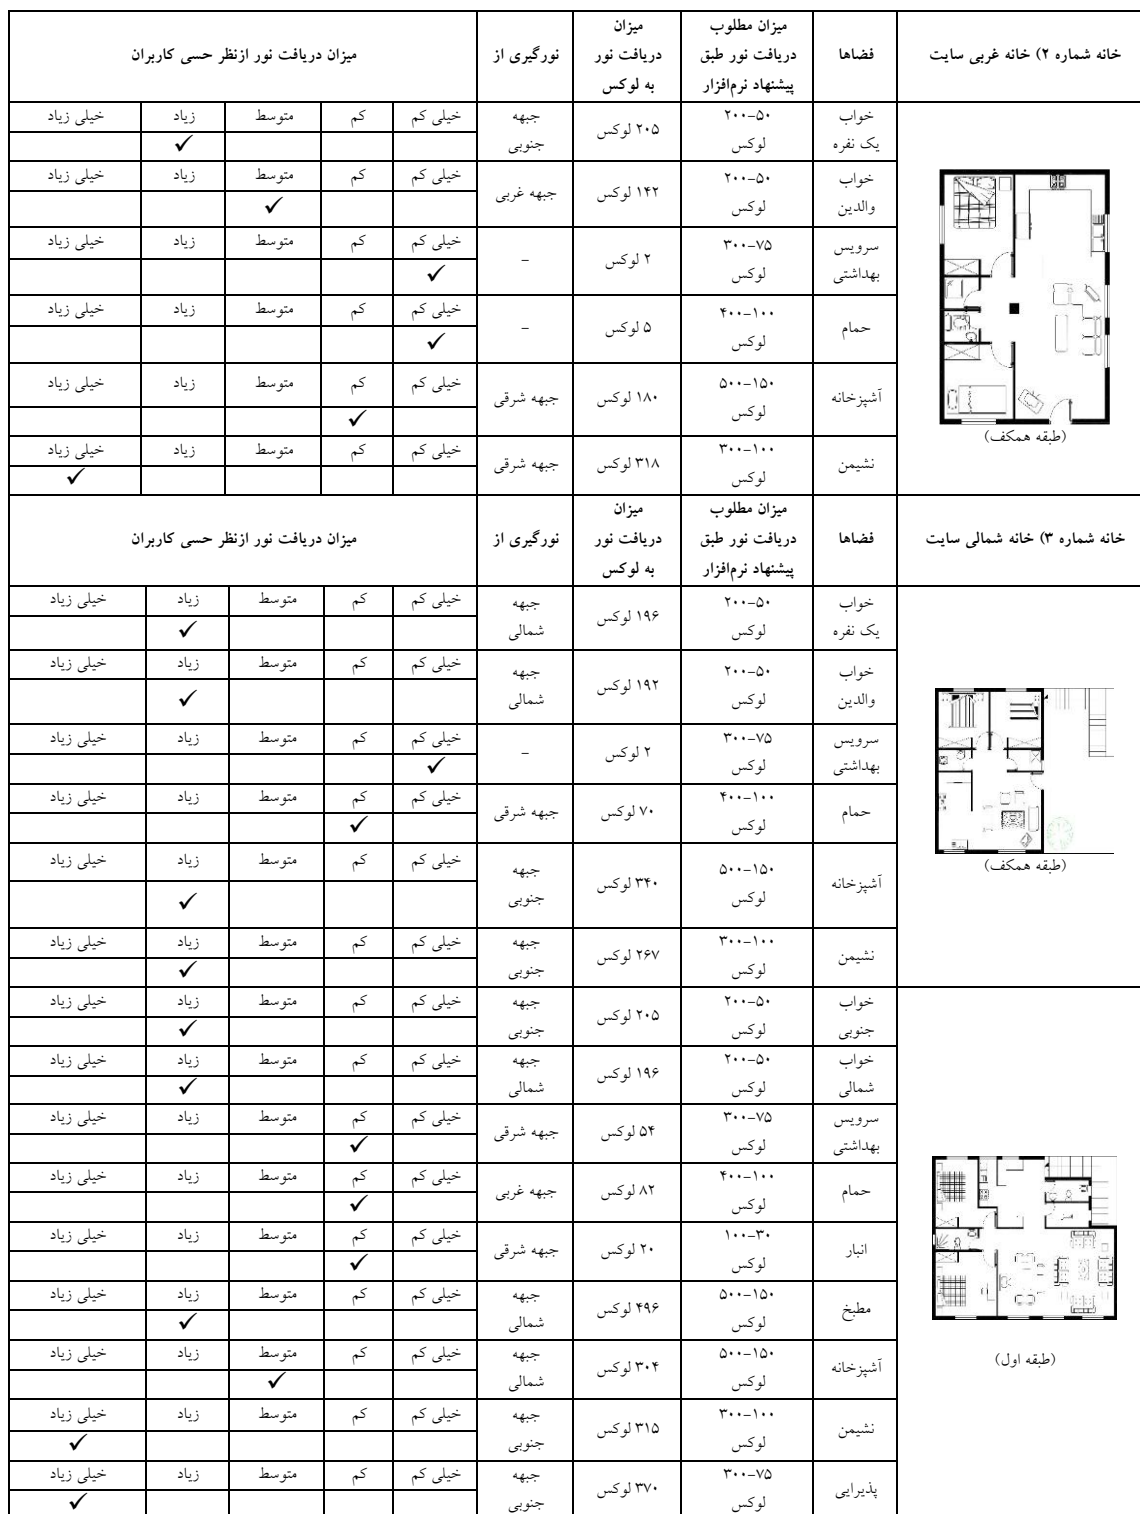 خانه شماره ۲) خانه غربی سایت
فضاها
میزان مطلوب
دریافت نور طبق
پیشنهاد نرم‌افزار
میزان
دریافت نور
به لوکس
نورگیری از
میزان دریافت نور ازنظر حسی کاربران
(طبقه همکف)
خواب
یک نفره
۲۰۰–۵۰
لوکس
۲۰۵ لوکس
جبهه
جنوبی
خیلی کم کم متوسط زیاد خیلی زیاد
✓
خواب
والدین
۲۰۰–۵۰
لوکس
۱۴۲ لوکس
جبهه غربی
خیلی کم کم متوسط زیاد خیلی زیاد
✓
سرویس
بهداشتی
۳۰۰–۷۵
لوکس
۲ لوکس
–
خیلی کم کم متوسط زیاد خیلی زیاد
✓
حمام
۴۰۰–۱۰۰
لوکس
۵ لوکس
–
خیلی کم کم متوسط زیاد خیلی زیاد
✓
آشپزخانه
۵۰۰–۱۵۰
لوکس
۱۸۰ لوکس
جبهه شرقی
خیلی کم کم متوسط زیاد خیلی زیاد
✓
نشیمن
۳۰۰–۱۰۰
لوکس
۳۱۸ لوکس
جبهه شرقی
خیلی کم کم متوسط زیاد خیلی زیاد
✓
خانه شماره ۳) خانه شمالی سایت
فضاها
میزان مطلوب
دریافت نور طبق
پیشنهاد نرم‌افزار
میزان
دریافت نور
به لوکس
نورگیری از
میزان دریافت نور ازنظر حسی کاربران
(طبقه همکف)
خواب
یک نفره
۲۰۰–۵۰
لوکس
۱۹۶ لوکس
جبهه
شمالی
خیلی کم کم متوسط زیاد خیلی زیاد
✓
خواب
والدین
۲۰۰–۵۰
لوکس
۱۹۲ لوکس
جبهه
شمالی
خیلی کم کم متوسط زیاد خیلی زیاد
✓
سرویس
بهداشتی
۳۰۰–۷۵
لوکس
۲ لوکس
–
خیلی کم کم متوسط زیاد خیلی زیاد
✓
حمام
۴۰۰–۱۰۰
لوکس
۷۰ لوکس
جبهه شرقی
خیلی کم کم متوسط زیاد خیلی زیاد
✓
آشپزخانه
۵۰۰–۱۵۰
لوکس
۳۴۰ لوکس
جبهه
جنوبی
خیلی کم کم متوسط زیاد خیلی زیاد
✓
نشیمن
۳۰۰–۱۰۰
لوکس
۲۶۷ لوکس
جبهه
جنوبی
خیلی کم کم متوسط زیاد خیلی زیاد
✓
(طبقه اول)
خواب
جنوبی
۲۰۰–۵۰
لوکس
۲۰۵ لوکس
جبهه
جنوبی
خیلی کم کم متوسط زیاد خیلی زیاد
✓
خواب
شمالی
۲۰۰–۵۰
لوکس
۱۹۶ لوکس
جبهه
شمالی
خیلی کم کم متوسط زیاد خیلی زیاد
✓
سرویس
بهداشتی
۳۰۰–۷۵
لوکس
۵۴ لوکس
جبهه شرقی
خیلی کم کم متوسط زیاد خیلی زیاد
✓
حمام
۴۰۰–۱۰۰
لوکس
۸۲ لوکس
جبهه غربی
خیلی کم کم متوسط زیاد خیلی زیاد
✓
انبار
۱۰۰–۳۰
لوکس
۲۰ لوکس
جبهه شرقی
خیلی کم کم متوسط زیاد خیلی زیاد
✓
مطبخ
۵۰۰–۱۵۰
لوکس
۴۹۶ لوکس
جبهه
شمالی
خیلی کم کم متوسط زیاد خیلی زیاد
✓
آشپزخانه
۵۰۰–۱۵۰
لوکس
۳۰۴ لوکس
جبهه
شمالی
خیلی کم کم متوسط زیاد خیلی زیاد
✓
نشیمن
۳۰۰–۱۰۰
لوکس
۳۱۵ لوکس
جبهه
جنوبی
خیلی کم کم متوسط زیاد خیلی زیاد
✓
پذیرایی
۳۰۰–۷۵
لوکس
۳۷۰ لوکس
جبهه
جنوبی
خیلی کم کم متوسط زیاد خیلی زیاد
✓